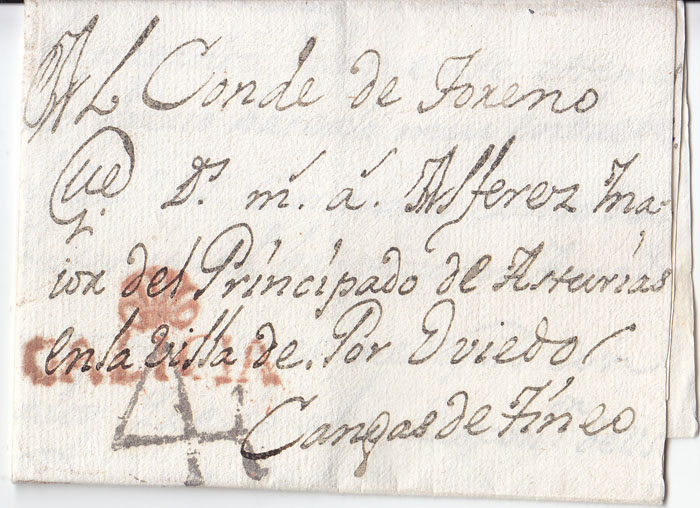 Al Conde de Toreno
que D.s m. a. Alferez Ma-
ior del Principado de Asturias
en la Villa de. Por Oviedo
Cangas de Tineo
GALICIA
4